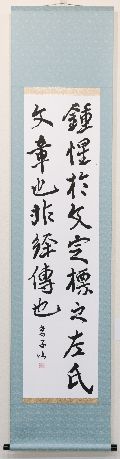 鍾惺於文定標之左氏
文章也非経傳也